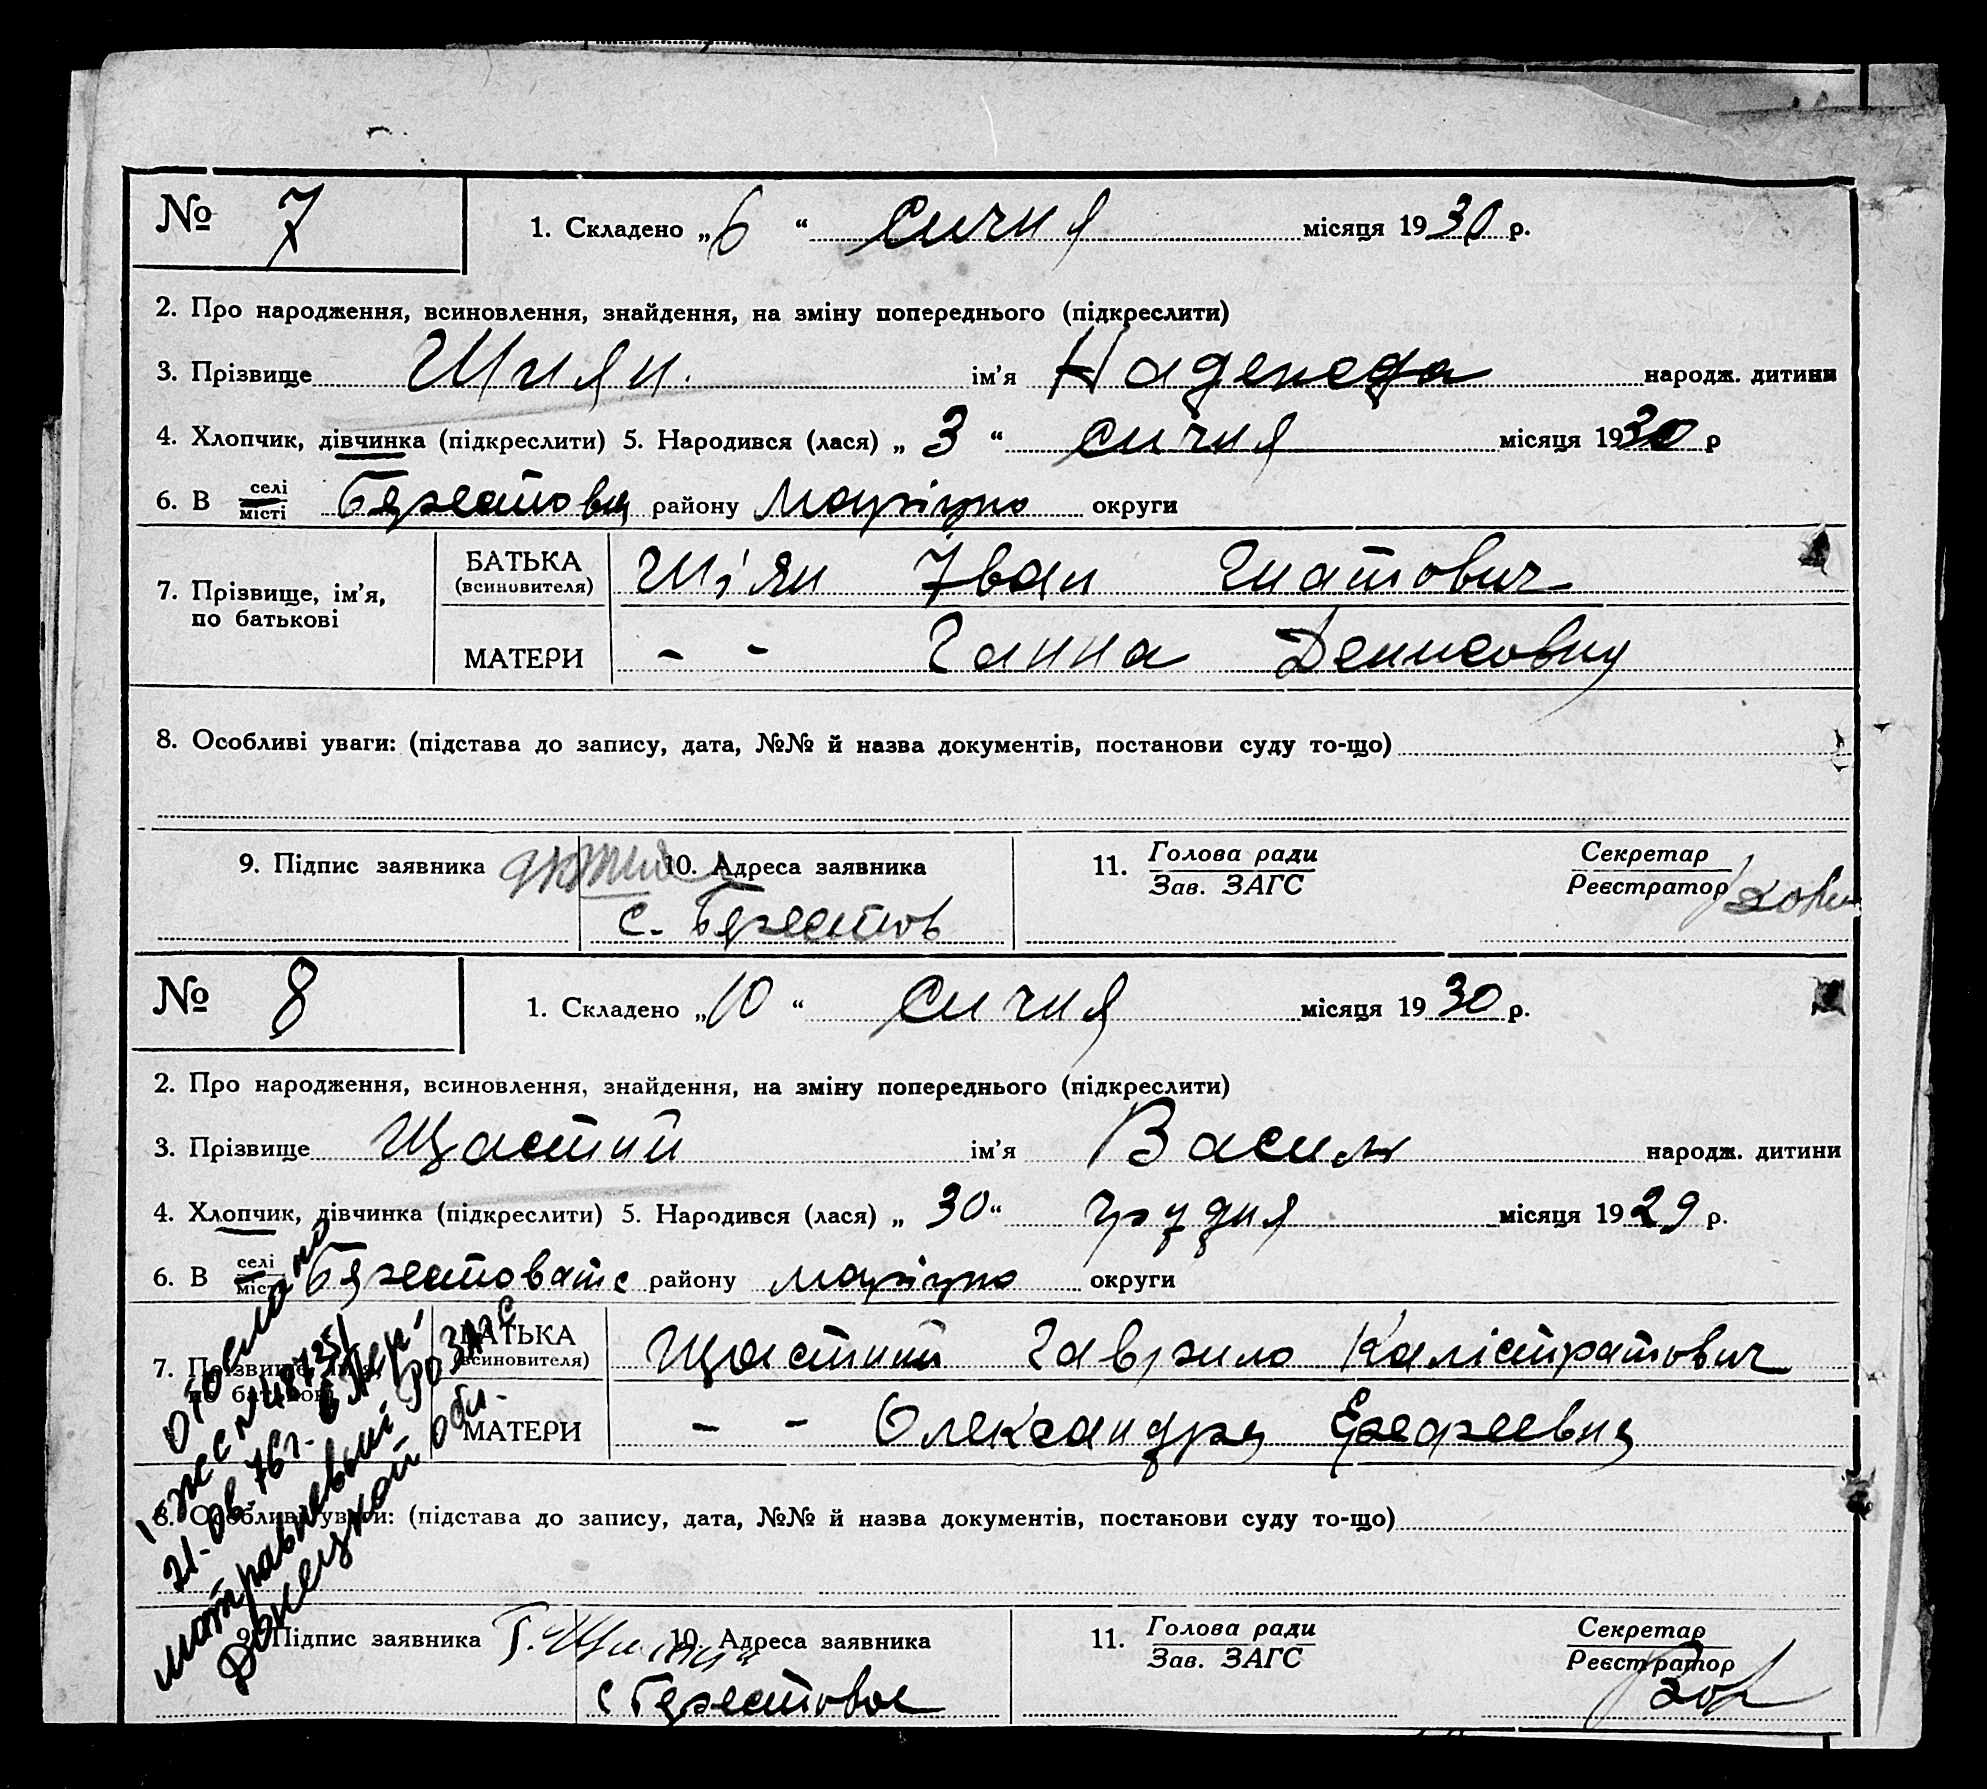 № 7 1. Складено „6“ сичня місяця 1930 р.
2. Про народження, всиновлення, знайдення, на зміну попереднього (підкреслити)
3. Прізвище Шиян. ім’я Надежда народж. дитини
4. Хлопчик, дівчинка (підкреслити) 5. Народився (лася) „3“ сичня місяця 1930 р
6. В селі місті району округи
7. Прізвище, ім’я, по батькові
БАТЬКА (всиновителя) Шіян Іван Гнатович
МАТЕРИ - - Ганна Денисовна
8. Особливі уваги: (підстава до запису, дата, №№ й назва документів, постанови суду то-що)
9. Підпис заявника 10. Адреса заявника 11. Голова ради Секретар
Зав. ЗАГС Реєстратор
с. Берестов
№ 8 1. Складено „10“ сичня місяця 1930 р.
2. Про народження, всиновлення, знайдення, на зміну попереднього (підкреслити)
3. Прізвище Щастий ім’я Василь народж. дитини
4. Хлопчик, дівчинка (підкреслити) 5. Народився (лася) „30“ грудня місяця 1929 р.
6. В селі місті району округи
7. Прізвище, ім’я, по батькові
БАТЬКА (всиновителя) Щастий Гаврило Калістратович
МАТЕРИ - - Олександра
8. Особливі уваги: (підстава до запису, дата, №№ й назва документів, постанови суду то-що)
Отослано
21-06.76г.
Донецкой обл.
9. Підпис заявника 10. Адреса заявника 11. Голова ради Секретар
Зав. ЗАГС Реєстратор
с Берестовое